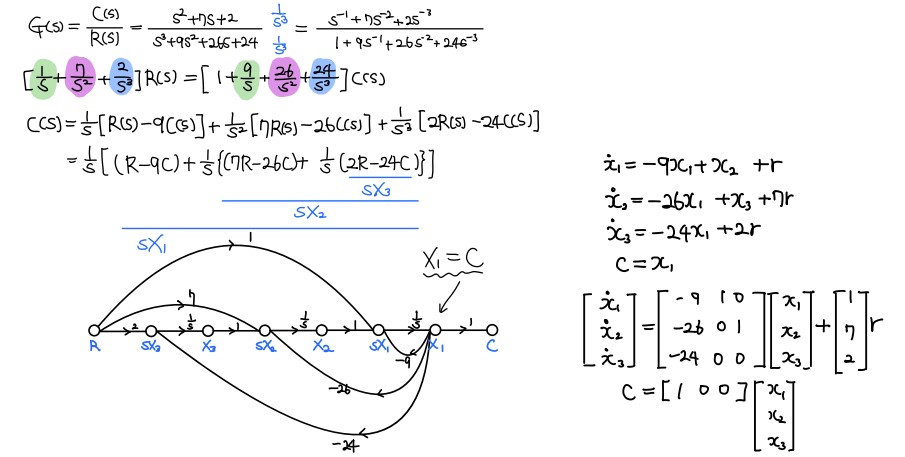 G(s) = C(s)/R(s) = (s²+7s+2)/(s³+9s²+26s+24) (1/s³)/(1/s³) = (s⁻¹+7s⁻²+2s⁻³)/(1+9s⁻¹+26s⁻²+24s⁻³)
[1/s + 7/s² + 2/s³] R(s) = [1 + 9/s + 26/s² + 24/s³] C(s)
C(s) = 1/s [R(s) −9C(s)] + 1/s² [7R(s) −26C(s)] + 1/s³ [2R(s) −24C(s)]
= 1/s [(R−9C) + 1/s {(7R−26C) + 1/s (2R−24C)}]
sX₃
sX₂
sX₁
X₁ = C
1
7
2 1/s 1 1/s 1 1/s 1
R sX₃ X₃ sX₂ X₂ sX₁ X₁ C
−9
−26
−24
ẋ₁ = −9x₁ + x₂ + r
ẋ₂ = −26x₁ + x₃ + 7r
ẋ₃ = −24x₁ + 2r
C = x₁
[ẋ₁ ẋ₂ ẋ₃] = [−9 1 0; −26 0 1; −24 0 0] [x₁ x₂ x₃] + [1 7 2] r
C = [1 0 0] [x₁ x₂ x₃]